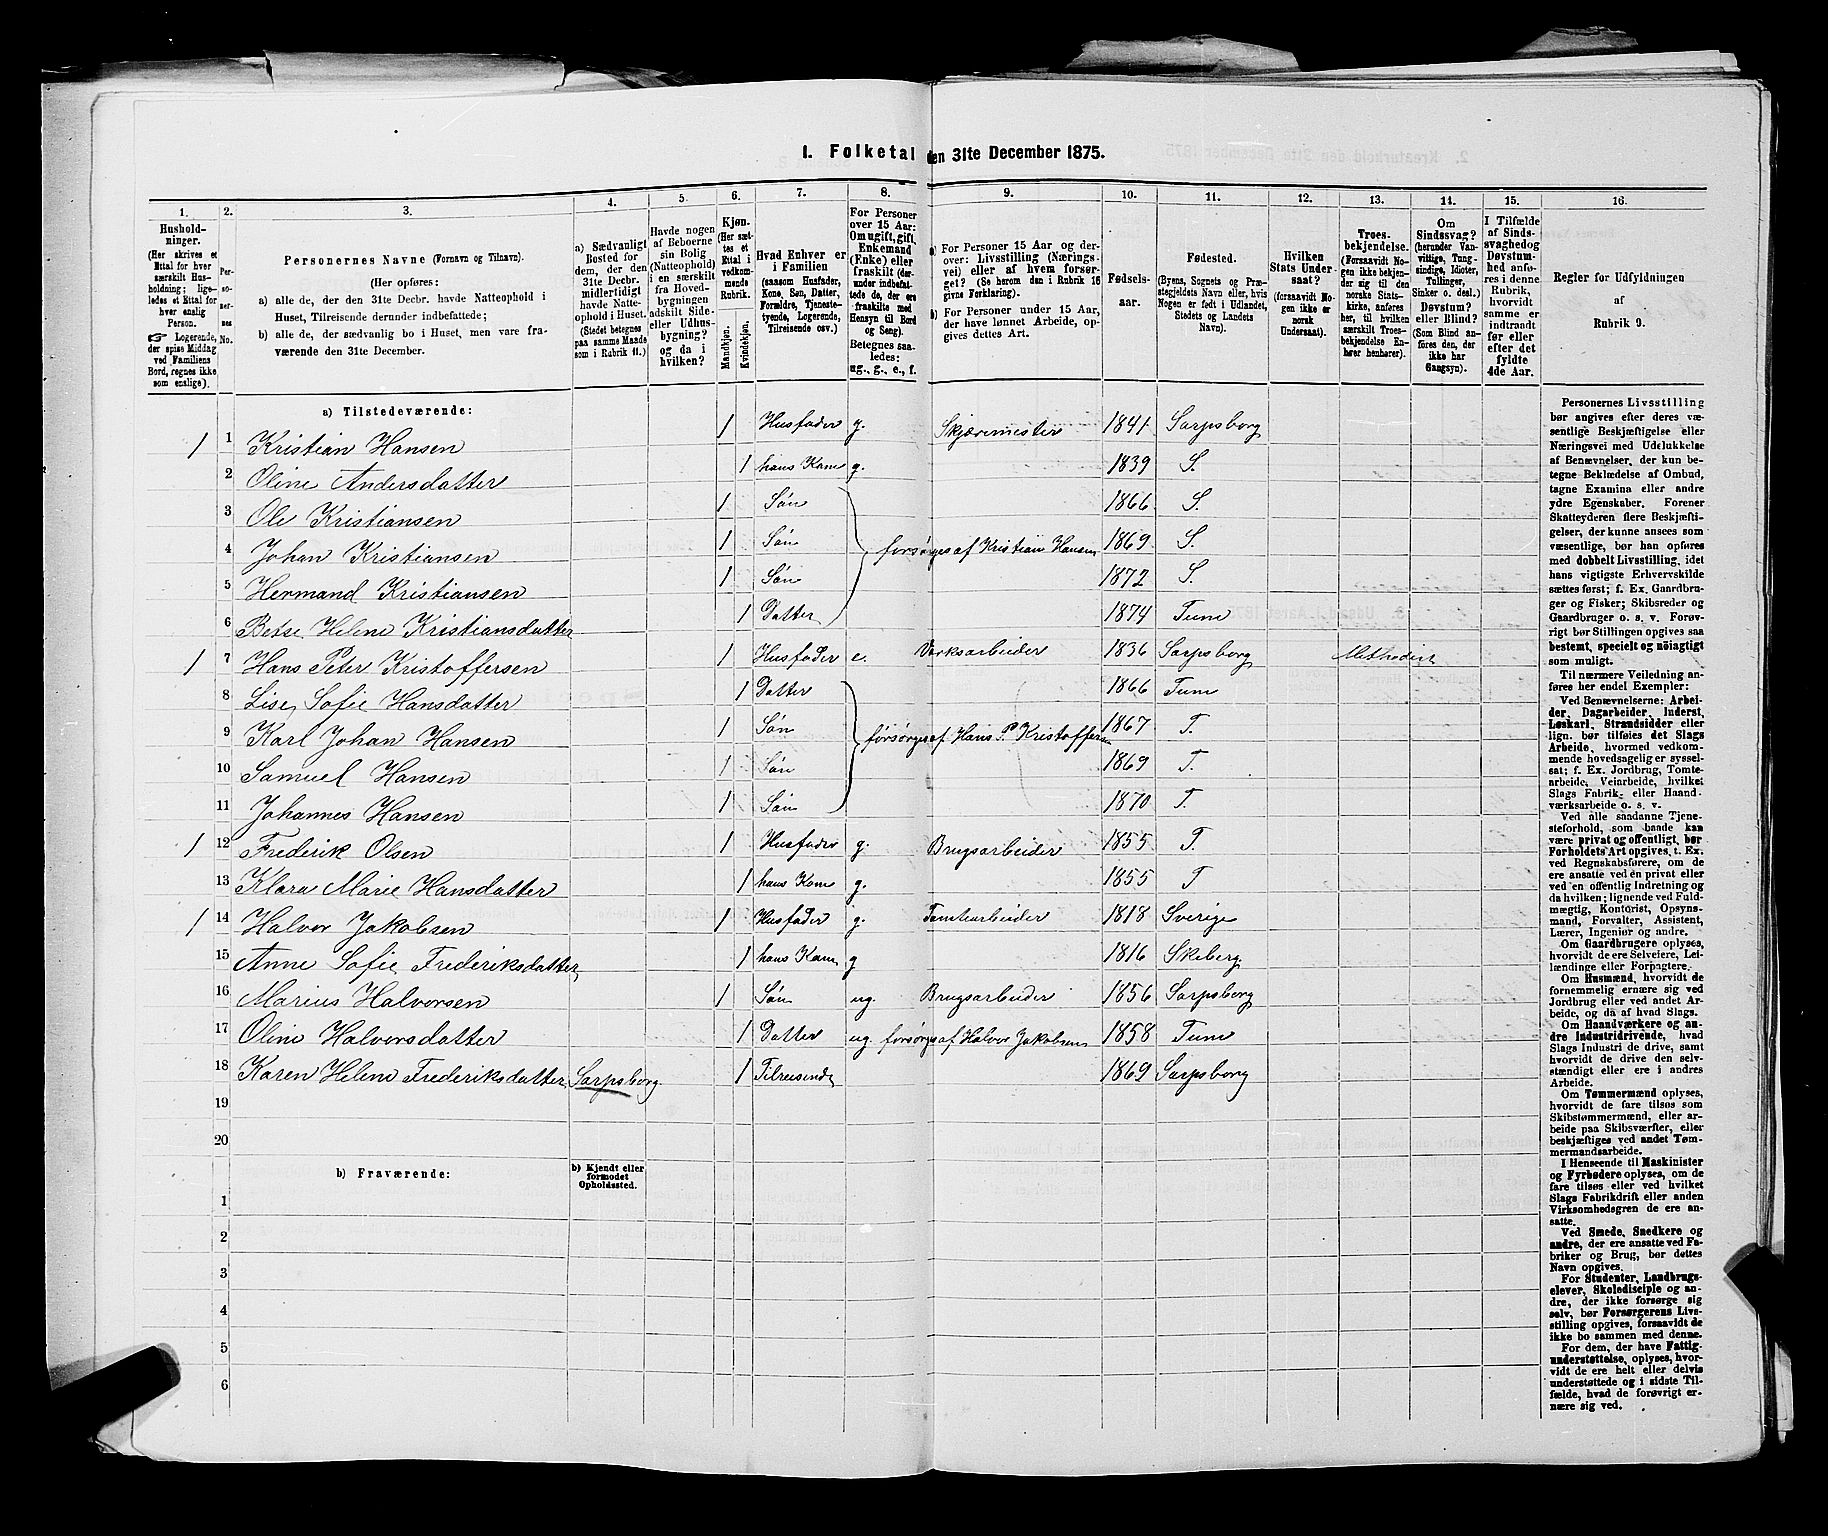 1. Folketal den 31te December 1875.
1. 2. 3. 4. 5. 6. 7. 8. 9. 10. 11. 12. 13. 14. 15. 16.
Hushold-
ninger.
(Her skrives et
Ettal for hver
særskilt Hus-
holdning; lige-
ledes et Ettal for
hver enslig
Person.
☞ Logerende,
der spise Middag
ved Familiens
Bord, regnes ikke
som enslige).
Per-
so-
ner-
nes
No.
Personernes Navne (Fornavn og Tilnavn).
(Her opføres:
a) alle de, der den 31te Decbr. havde Natteophold i
Huset, Tilreisende derunder indbefattede;
b) alle de, der sædvanlig bo i Huset, men vare fra-
værende den 31te December.
a) Sædvanligt
Bosted for
dem, der den
31te Decbr.
midlertidigt
havde Natte-
ophold i Huset.
(Stedet betegnes
paa samme Maade
som i Rubrik 11.)
Havde nogen
af Beboerne
sin Bolig
(Natteophold)
i en særskilt
fra Hoved-
bygningen
adskilt Side-
eller Udhus-
bygning?
og da i
hvilken?
Kjøn.
(Her sæt-
tes et
Ettal i
vedkom-
mende
Rubrik.
Mandkjøn.
Kvindekjøn.
Hvad Enhver er
i Familien
(saasom Husfader,
Kone, Søn, Datter,
Forældre, Tjeneste-
tyende, Logerende,
Tilreisende osv.)
For Personer
over 15 Aar:
Om ugift, gift,
Enkemand
(Enke) eller
fraskilt (der-
under indbefat-
tede de, der ere
fraskilte med
Hensyn til Bord
og Seng).
Betegnes saa-
ledes:
ug., g., e., f.
a) For Personer 15 Aar og der-
over: Livsstilling (Nærings-
vei) eller af hvem forsør-
get? (Se herom den i Rubrik 16
givne Forklaring).
b) For Personer under 15 Aar,
der have lønnet Arbeide, op-
gives dettes Art.
Fødsels-
aar.
Fødested.
(Byens, Sognets og Præ-
stegjeldets Navn eller, hvis
Nogen er født i Udlandet,
Stedets og Landets
Navn).
Hvilken
Stats Under-
saat?
(forsaavidt No-
gen ikke er
norsk
Undersaat).
Troes-
bekjendelse.
(Forsaavidt No-
gen ikke bekjen-
der sig til den
norske Stats-
kirke, anføres
her, til hvilken
særskilt Troes-
bekjendelse En-
hver henhører).
Om
Sindssvag?
(herunder Van-
vittige, Tung-
sindige, Idioter,
Tullinger,
Sinker o. desl.)
Døvstum?
eller Blind?
(Som Blind an-
føres den, der
ikke har
Gangsyn).
I Tilfælde
af Sinds-
svaghedog
Døvstum-
hed anfø-
res i denne
Rubrik,
hvorvidt
samme er
indtraadt
før eller
efter det
fyldte
4de Aar.
Regler for Udfyldningen
af
Rubrik 9.
a) Tilstedeværende:
1 1 Kristian Hansen 1 Husfader g. Skjæremester 1841 Sarpsborg
2 Oline Andersdatter 1 hans Kone g. 1839 S.
3 Ole Kristiansen 1 Søn 1866 S.
4 Johan Kristiansen 1 Søn forsørges af Kristian Hansen 1869 S.
5 Hermand Kristiansen 1 Søn 1872 S.
6 Betse Helene Kristiansdatter 1 Datter 1874 Tune
1 7 Hans Peter Kristoffersen 1 Husfader e. Værksarbeider 1836 Sarpsborg Methodist
8 Lise Sofie Hansdatter 1 Datter 1866 Tune
9 Karl Johan Hansen 1 Søn forsørges af Hans P. Kristoffersen 1867 T.
10 Samuel Hansen 1 Søn 1869 T.
11 Johannes Hansen 1 Søn 1870 T.
1 12 Frederik Olsen 1 Husfader g. Brugsarbeider 1855 T.
13 Klara Marie Hansdatter 1 hans Kone g. 1855 T
1 14 Halvor Jakobsen 1 Husfader g. Tomtearbeider 1818 Sverige
15 Anne Sofie Frederiksdatter 1 hans Kone g 1816 Skeberg
16 Marius Halvorsen 1 Søn ug. Brugsarbeider 1856 Sarpsborg
17 Oline Halvorsdatter 1 Datter ug. forsørges af Halvor Jakobsen 1858 Tune
18 Karen Helene Frederiksdatter Sarpsborg 1 Tilreisende 1869 Sarpsborg
19
20
b) Fraværende:
b) Kjendt eller
formodet
Opholdssted.
1
2
3
4
5
6
Personernes Livsstilling
bør angives efter deres væ-
sentlige Beskjæftigelse eller
Næringsvei med Udelukkelse
af Benævnelser, der kun be-
tegne Beklædelse af Ombud,
tagne Examina eller andre
ydre Egenskaber. Forener
Skatteyderen flere Beskjæfti-
gelser, der kunne ansees som
væsentlige, bør han opføres
med dobbelt Livsstilling, idet
hans vigtigste Erhvervskilde
sættes først; f. Ex. Gaardbru-
ger og Fisker; Skibsreder og
Gaardbruger o. s. v. Forøv-
rigt bør Stillingen opgives saa
bestemt, specielt og nøiagtigt
som muligt.
Til nærmere Veiledning an-
føres her endel Exempler:
Ved Benævnelserne: Arbei-
der, Dagarbeider, Inderst,
Løskarl, Strandsidder eller
lign. bør tilføies det Slags
Arbeide, hvormed vedkom-
mende hovedsagelig er syssel-
sat; f. Ex. Jordbrug, Tomte-
arbeide, Veiarbeide, hvilket
Slags Fabrik- eller Haand-
værksarbeide o. s. v.
Ved alle saadanne Tjene-
steforhold, som baade kan
være privat og offentligt, bør
Forholdets Art opgives, t. Ex.
ved Regnskabsførere, om de
ere ansatte ved en privat eller
ved en offentlig Indretning og
da hvilken; lignende ved Fuld-
mægtig, Kontorist, Opsyns-
mand, Forvalter, Assistent,
Lærer, Ingeniør og andre.
Om Gaardbrugere oplyses,
hvorvidt de ere Selveiere, Lei-
lændinge eller Forpagtere.
Om Husmænd, hvorvidt de
fornemmelig ernære sig ved
Jordbrug eller ved andet Ar-
beide, og da af hvad Slags.
Om Haandværkere og an-
dre Industridrivende, hvad
Slags Industri de drive, samt
hvorvidt de drive den selv-
stændigt eller ere i andres
Arbeide.
Om Tømmermænd oplyses,
hvorvidt de fare tilsøs som
Skibstømmermænd, eller ar-
beide paa Skibsværfter, eller
beskjæftiges ved andet Tøm-
mermandsarbeide.
I Henseende til Maskinister
og Fyrbødere oplyses, om de
fare tilsøs eller ved hvilket
Slags Fabrikdrift eller anden
Virksomhedsgren de ere an-
satte.
Ved Smede, Snedkere og
andre, der ere ansatte ved Fa-
briker og Brug, bør dettes
Navn opgives.
For Studenter, Landbrugs-
elever, Skoledisciple og an-
dre, der ikke forsørge sig
selv, bør Forsørgerens Livs-
stilling opgives, forsaavidt de
ikke bo sammen med denne.
For dem, der have Fattig-
understøttelse, oplyses, hvor-
vidt de ere helt eller delvis
understøttede og i sidste Til-
fælde, hvad de forøvrigt er-
nære sig ved.